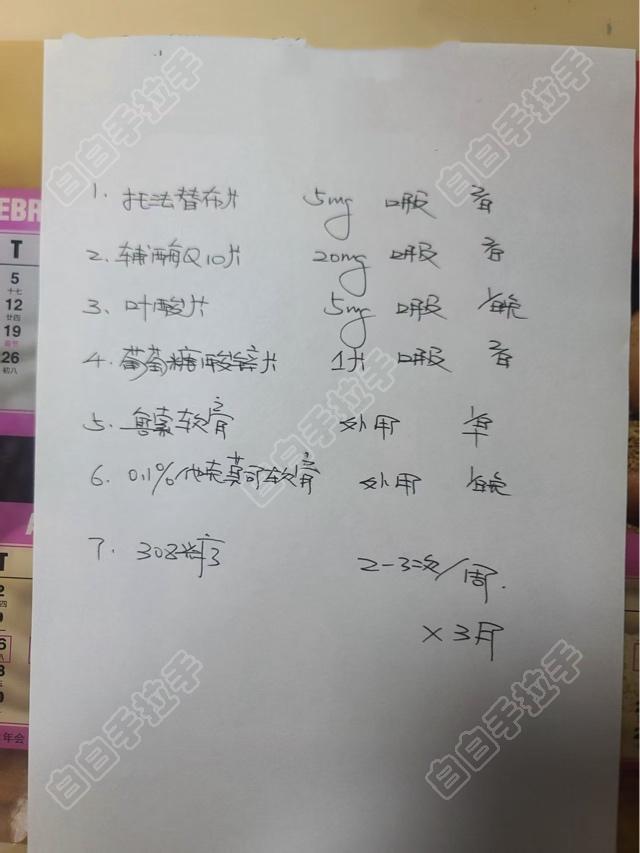 白白手拉手
白白手拉手
1. 托法替布片 5mg 口服 2/日
2. 辅酶Q10片 20mg 口服 2/日
3. 叶酸片 5mg 口服 1/每晚
4. 葡萄糖酸锌片 1片 口服 2/日
白白手拉手
5. 鲁索软膏 外用 1/早
6. 0.1%他克莫司软膏 外用 1/每晚
7. 308光疗 2-3次/周.
×3月
白白手拉手
白白手拉手
EBR
T
5
十七
12
廿四
19
26
初八
T
年会